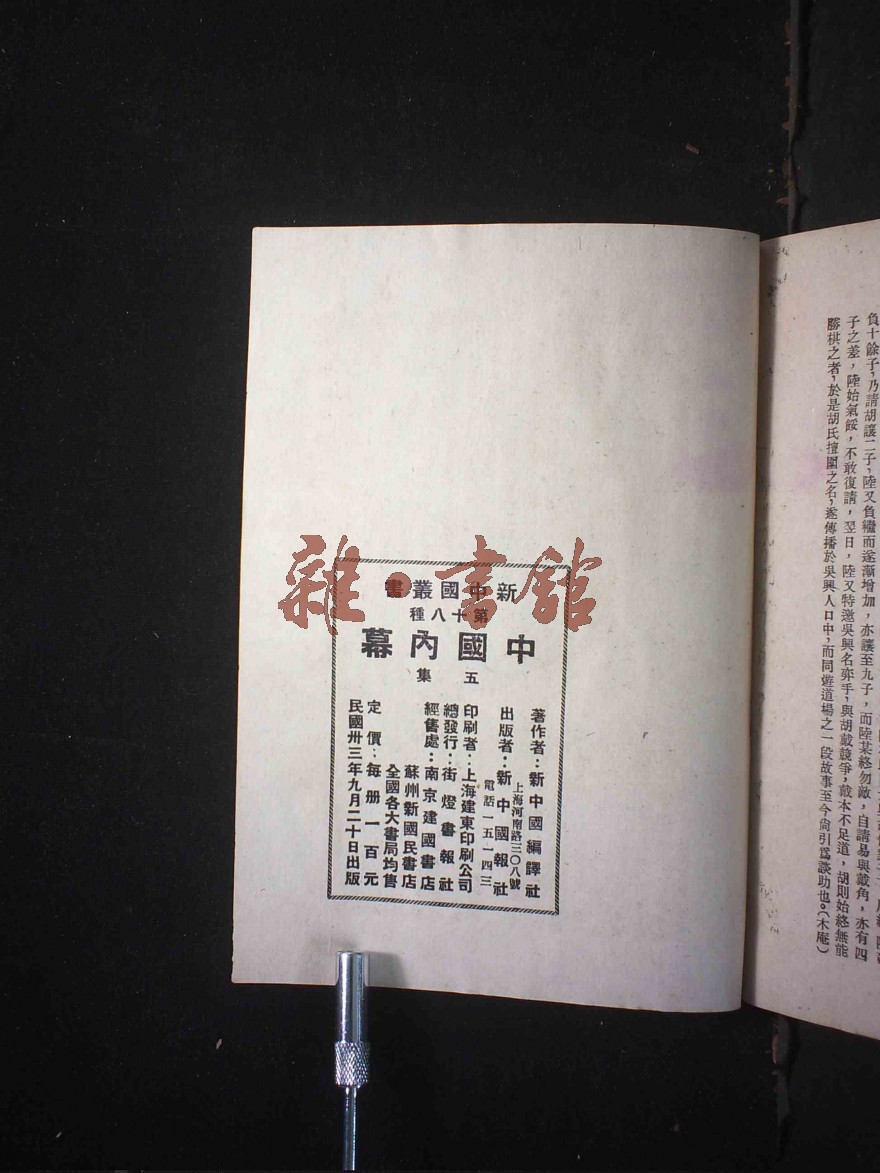 負十餘子，乃請胡讓二子，陸又負繼而遂漸增加，亦讓至九子，而陸某終勿敵，自請易與戴角，亦有四
子之差，陸始氣餒，不敢復請，翌日，陸又特邀吳興名弈手，與胡戴競爭，戴本不足道，胡則始終無能
勝棋之者，於是胡氏擅圍之名，遂傳播於吳興人口中，而同遊道場之一段故事至今尙引爲談助也。（木庵）
雜·書館
新中國叢書
第十八種
中國內幕
五集
著作者：新中國編譯社
上海河南路三〇八號
出版者：新中國報社
電話一五一四三
印刷者：上海建東印刷公司
總發行：街燈書報社
經售處：南京建國書店
蘇州新國民書店
全國各大書局均售
定價：每册一百元
民國卅三年九月二十日出版